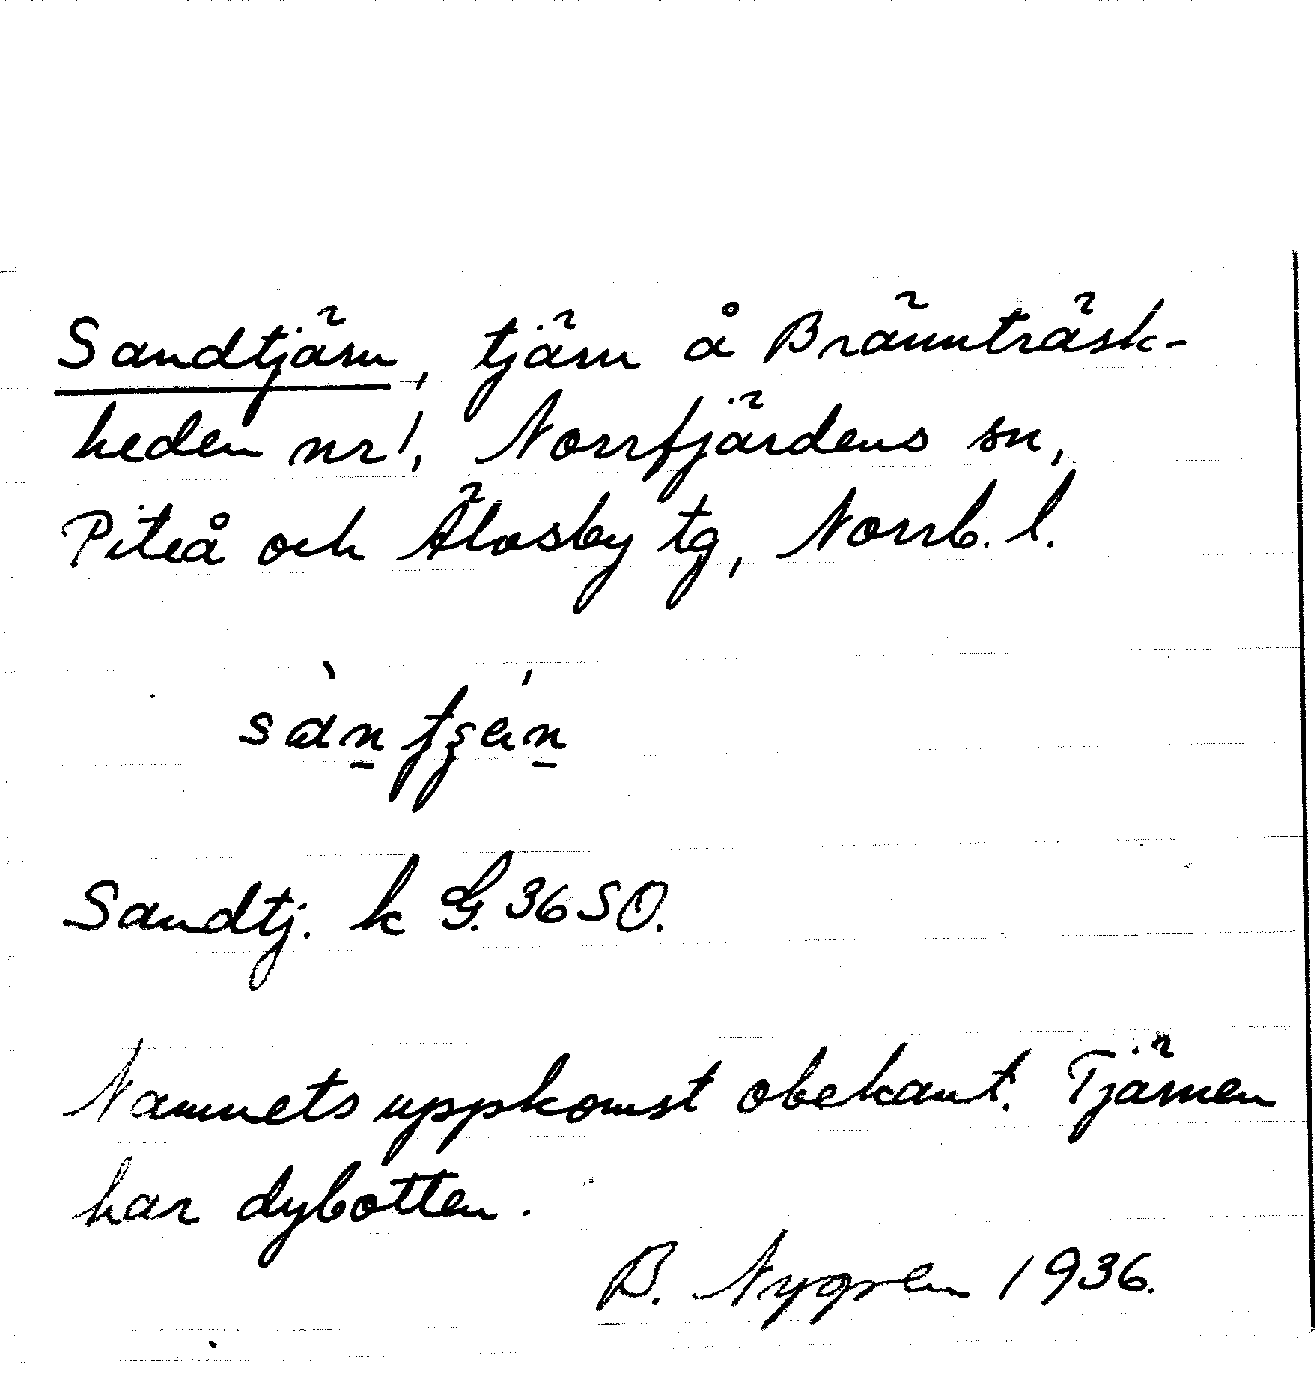 Sandtjärn, tjärn å Brännträsk-
heden nr 1, Norrfjärdens sn,
Piteå och Älvsby tg, Norrb. l.
Sandtj. k G. 36 SO.
Namnets uppkomst obekant. Tjärnen
har dybotten.
B. Nygren 1936.